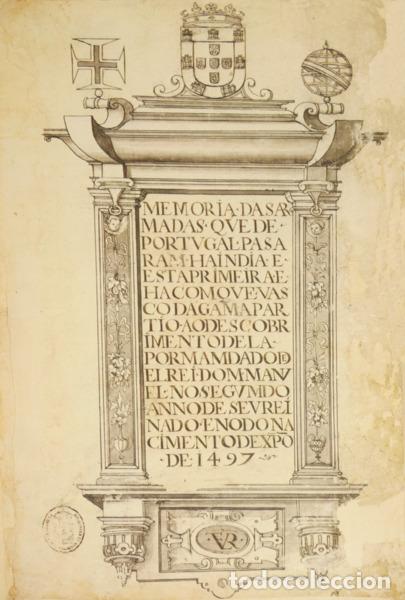 MEMORIA·DAS AR
MADAS·QVE DE·
PORTVGAL·PASA
RAM·HA INDIA·E·
ESTA PRIMEIRA E
HA COM QVE VAS
CO DA GAMA PAR
TIO·AO DESCOBR
IMENTO DE LA·
POR MAMDADO D
EL REI·DOM·MANV
EL·NO SEGVMDO
ANNO DE SEV REI
NADO·E NO DO NA
CIMENTO DE XPÕ
·DE·1497
VR
todocoleccion